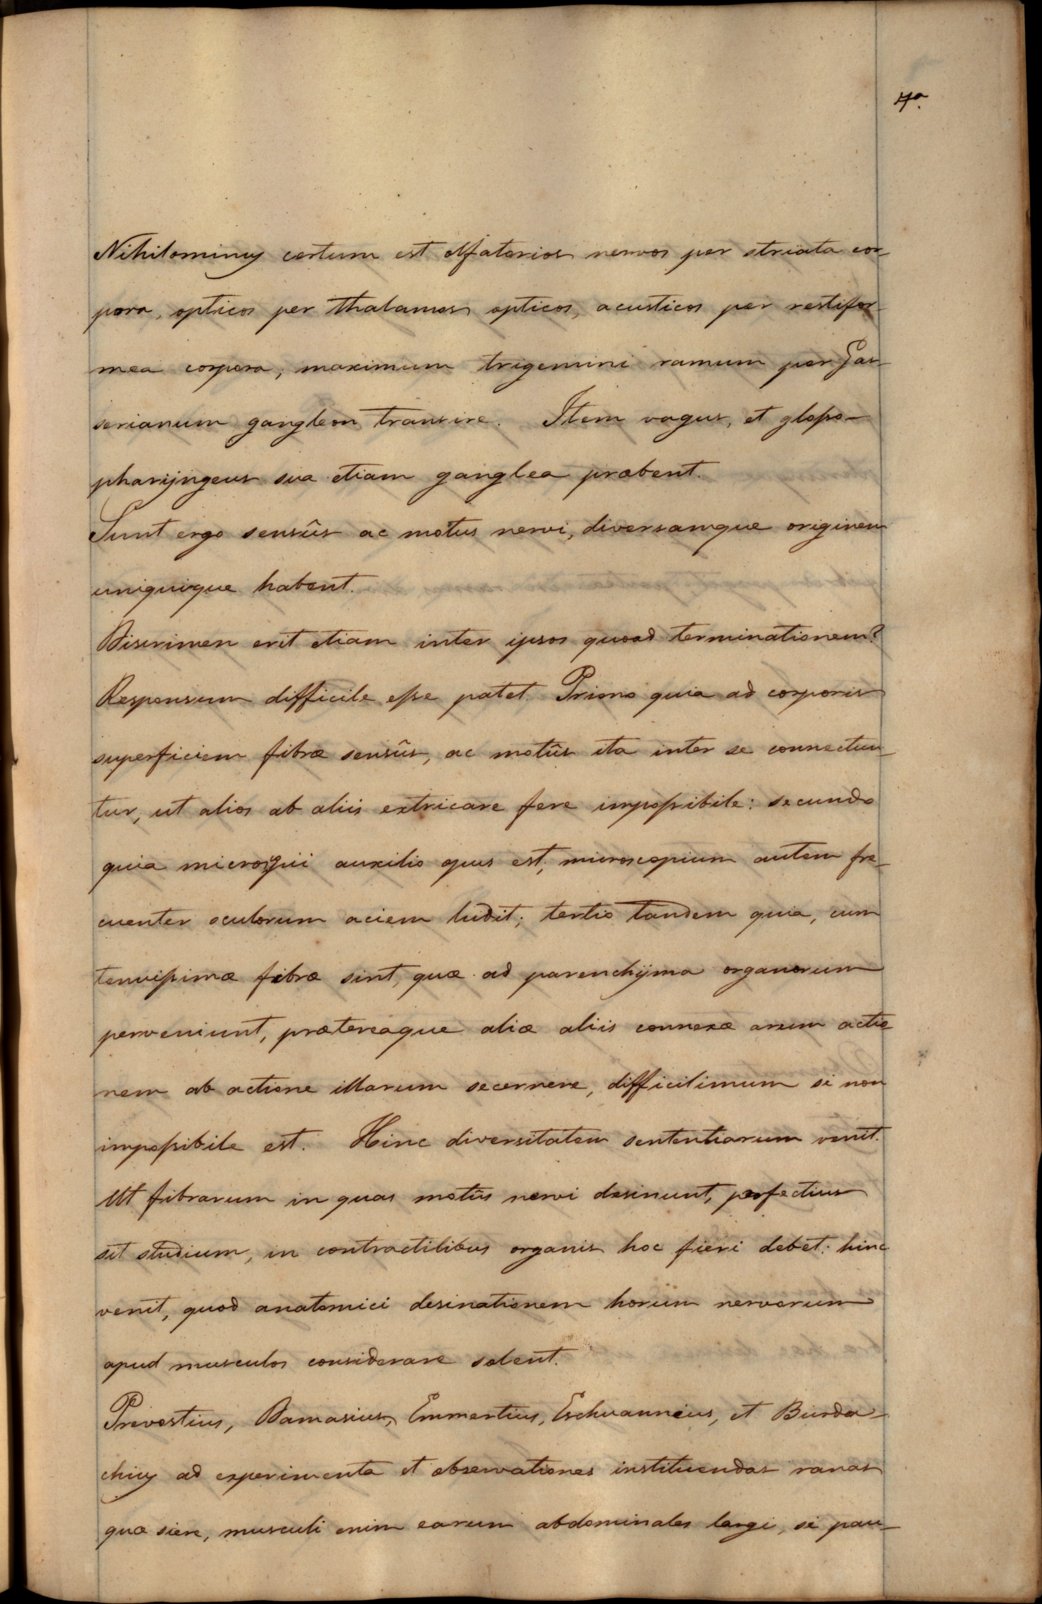 4º.
Nihilominus certum est olfatorios nervos per striata cor-
pora, opticos per thalamos opticos, acusticos per restifor-
mea corpora, maximum trigemini ramum per Gas-
serianum gangleon transire. Item vagus, et gloso-
pharijngeus sua etiam ganglea præbent.
Sunt ergo sensûs ac motus nervi, diversamque originem
uniquique habent.
Discrimen erit etiam inter ipsos quoad terminationem?
Responsum difficile esse patet. Primo quia ad corporis
superficiem fibræ sensûs, ac motûs ita inter se connectun-
tur, ut alios ab aliis extricare fere impossibile: secundo
quia microspii auxilio opus est, microscopium autem fre-
cuenter oculorum aciem ludit; tertio tandem quia, cum
tenuissimæ fibræ sint, quæ ad parenchijma organorum
perveniunt, prætereaque aliæ aliis connexæ arum actio
nem ab actione illarum secernere, difficilimum si non
impossibile est. Hinc diversitatem sententiarum venit.
Ut fibrarum in quas motûs nervi desinunt, perfectius
sit studium, in contractilibus organis hoc fieri debet: hinc
venit, quod anatomici desinationem horum nervorum
apud musculos considerare solent.
Prevostius, Damasius, Emmertius, Eschuanneius, et Burda-
chius ad experimenta et observationes instituendas ranas
quæ siere, musculi enim earum abdominales largi, si pau-